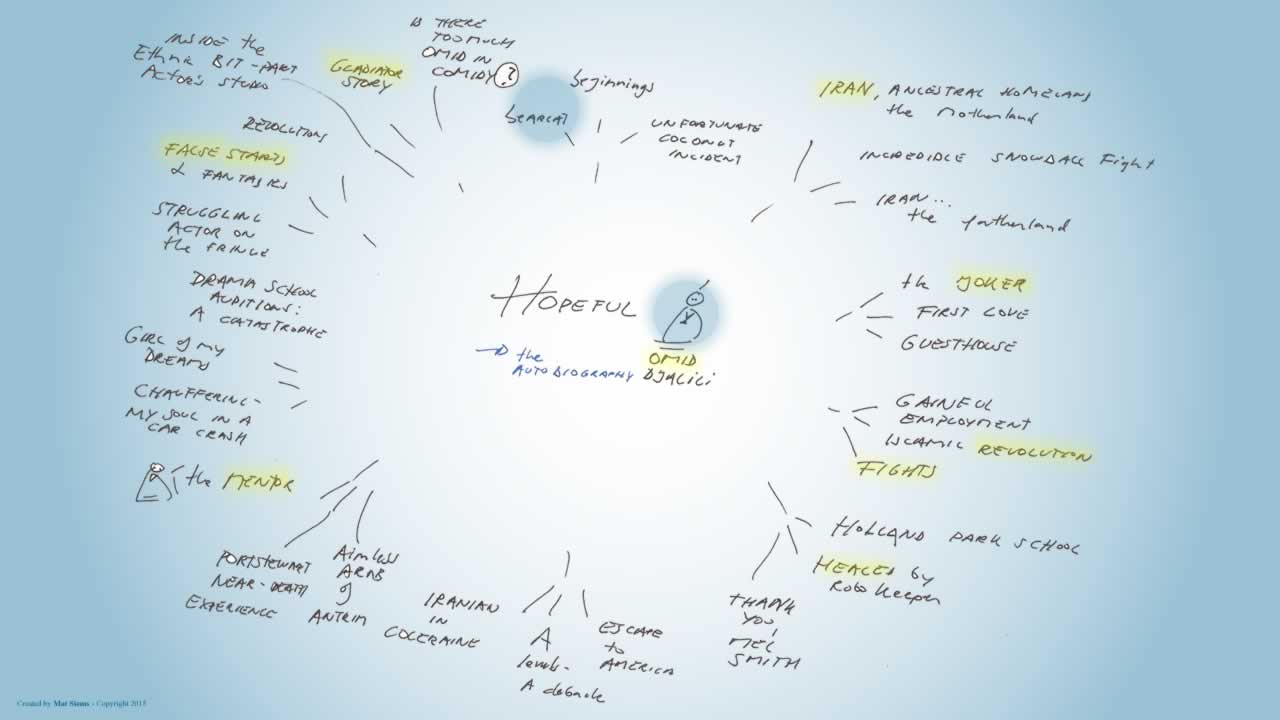 HOPEFUL
→ the
AUTOBIOGRAPHY
OMID
DJALILI
Beginnings
UNFORTUNATE
COCONUT
INCIDENT
IRAN, ANCESTRAL HOMELAND
the Motherland
INCREDIBLE SNOWBALL Fight
IRAN...
the fatherland
the JOKER
FIRST LOVE
GUESTHOUSE
GAINFUL
EMPLOYMENT
ISLAMIC REVOLUTION
FIGHTS
HOLLAND PARK SCHOOL
HEALED by
Robo Keeper
THANK
YOU,
MEL
SMITH
ESCAPE
to
AMERICA
A
levels-
A debacle
IRANIAN
IN
COLERAINE
Aimless
ARAB
of
ANTRIM
PORTSTEWART
NEAR-DEATH
EXPERIENCE
the MENTOR
CHAUFFERING-
MY SOUL IN A
CAR CRASH
GIRL of MY
DREAMS
DRAMA SCHOOL
AUDITIONS:
A CATASTROPHE
STRUGGLING
ACTOR ON
the FRINGE
FALSE STARTS
& FANTASIES
REVOLUTIONS
INSIDE the
Ethnic BIT-PART
ACTOR'S STUDIO
GLADIATOR
STORY
IS THERE
TOO MUCH
OMID IN
COMIDY?
Created by Mat Siems - Copyright 2015